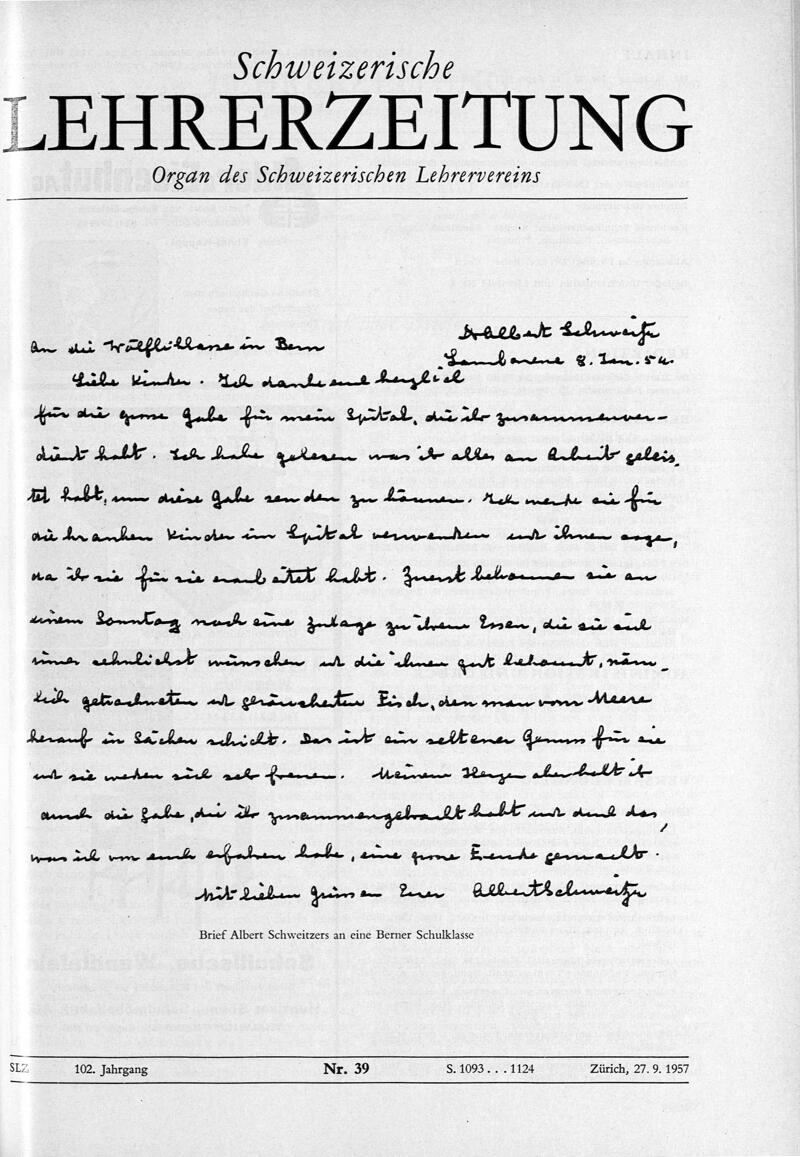 Schweizerische
LEHRERZEITUNG
Organ des Schweizerischen Lehrervereins
Dr Albert Schweitzer
An die Wölfliklasse in Bern
Lambarene 8. Jan. 54.
Liebe Kinder. Ich danke euch herzlich
für die grosse Gabe für mein Spital, die ihr zusammenver-
dient habt. Ich habe gelesen was ihr alles an Arbeit geleis-
tet habt, um diese Gabe senden zu können. Ich werde sie für
die kranken Kinder im Spital verwenden und ihnen sagen,
da ihr sie für sie erarbeitet habt. Zuerst bekommen sie an
einem Sonntag noch eine Zulage zu ihrem Essen, die sie sich
immer sehnlichst wünschen und die ihnen gut bekommt, näm-
lich getrockneten und geräucherten Fisch, den man vom Meere
herauf in Säcken schickt. Das ist ein seltener Genuss für sie
und sie werden sich sehr freuen. Meinem Herzen aber habt ihr
durch die Gabe, die ihr zusammengebracht habt und durch das,
was ich von euch erfahren habe, eine grosse Freude gemacht.
Mit lieben Grüssen Euer Albert Schweitzer
Brief Albert Schweitzers an eine Berner Schulklasse
SLZ 102. Jahrgang Nr. 39 S. 1093 . . . 1124 Zürich, 27. 9. 1957